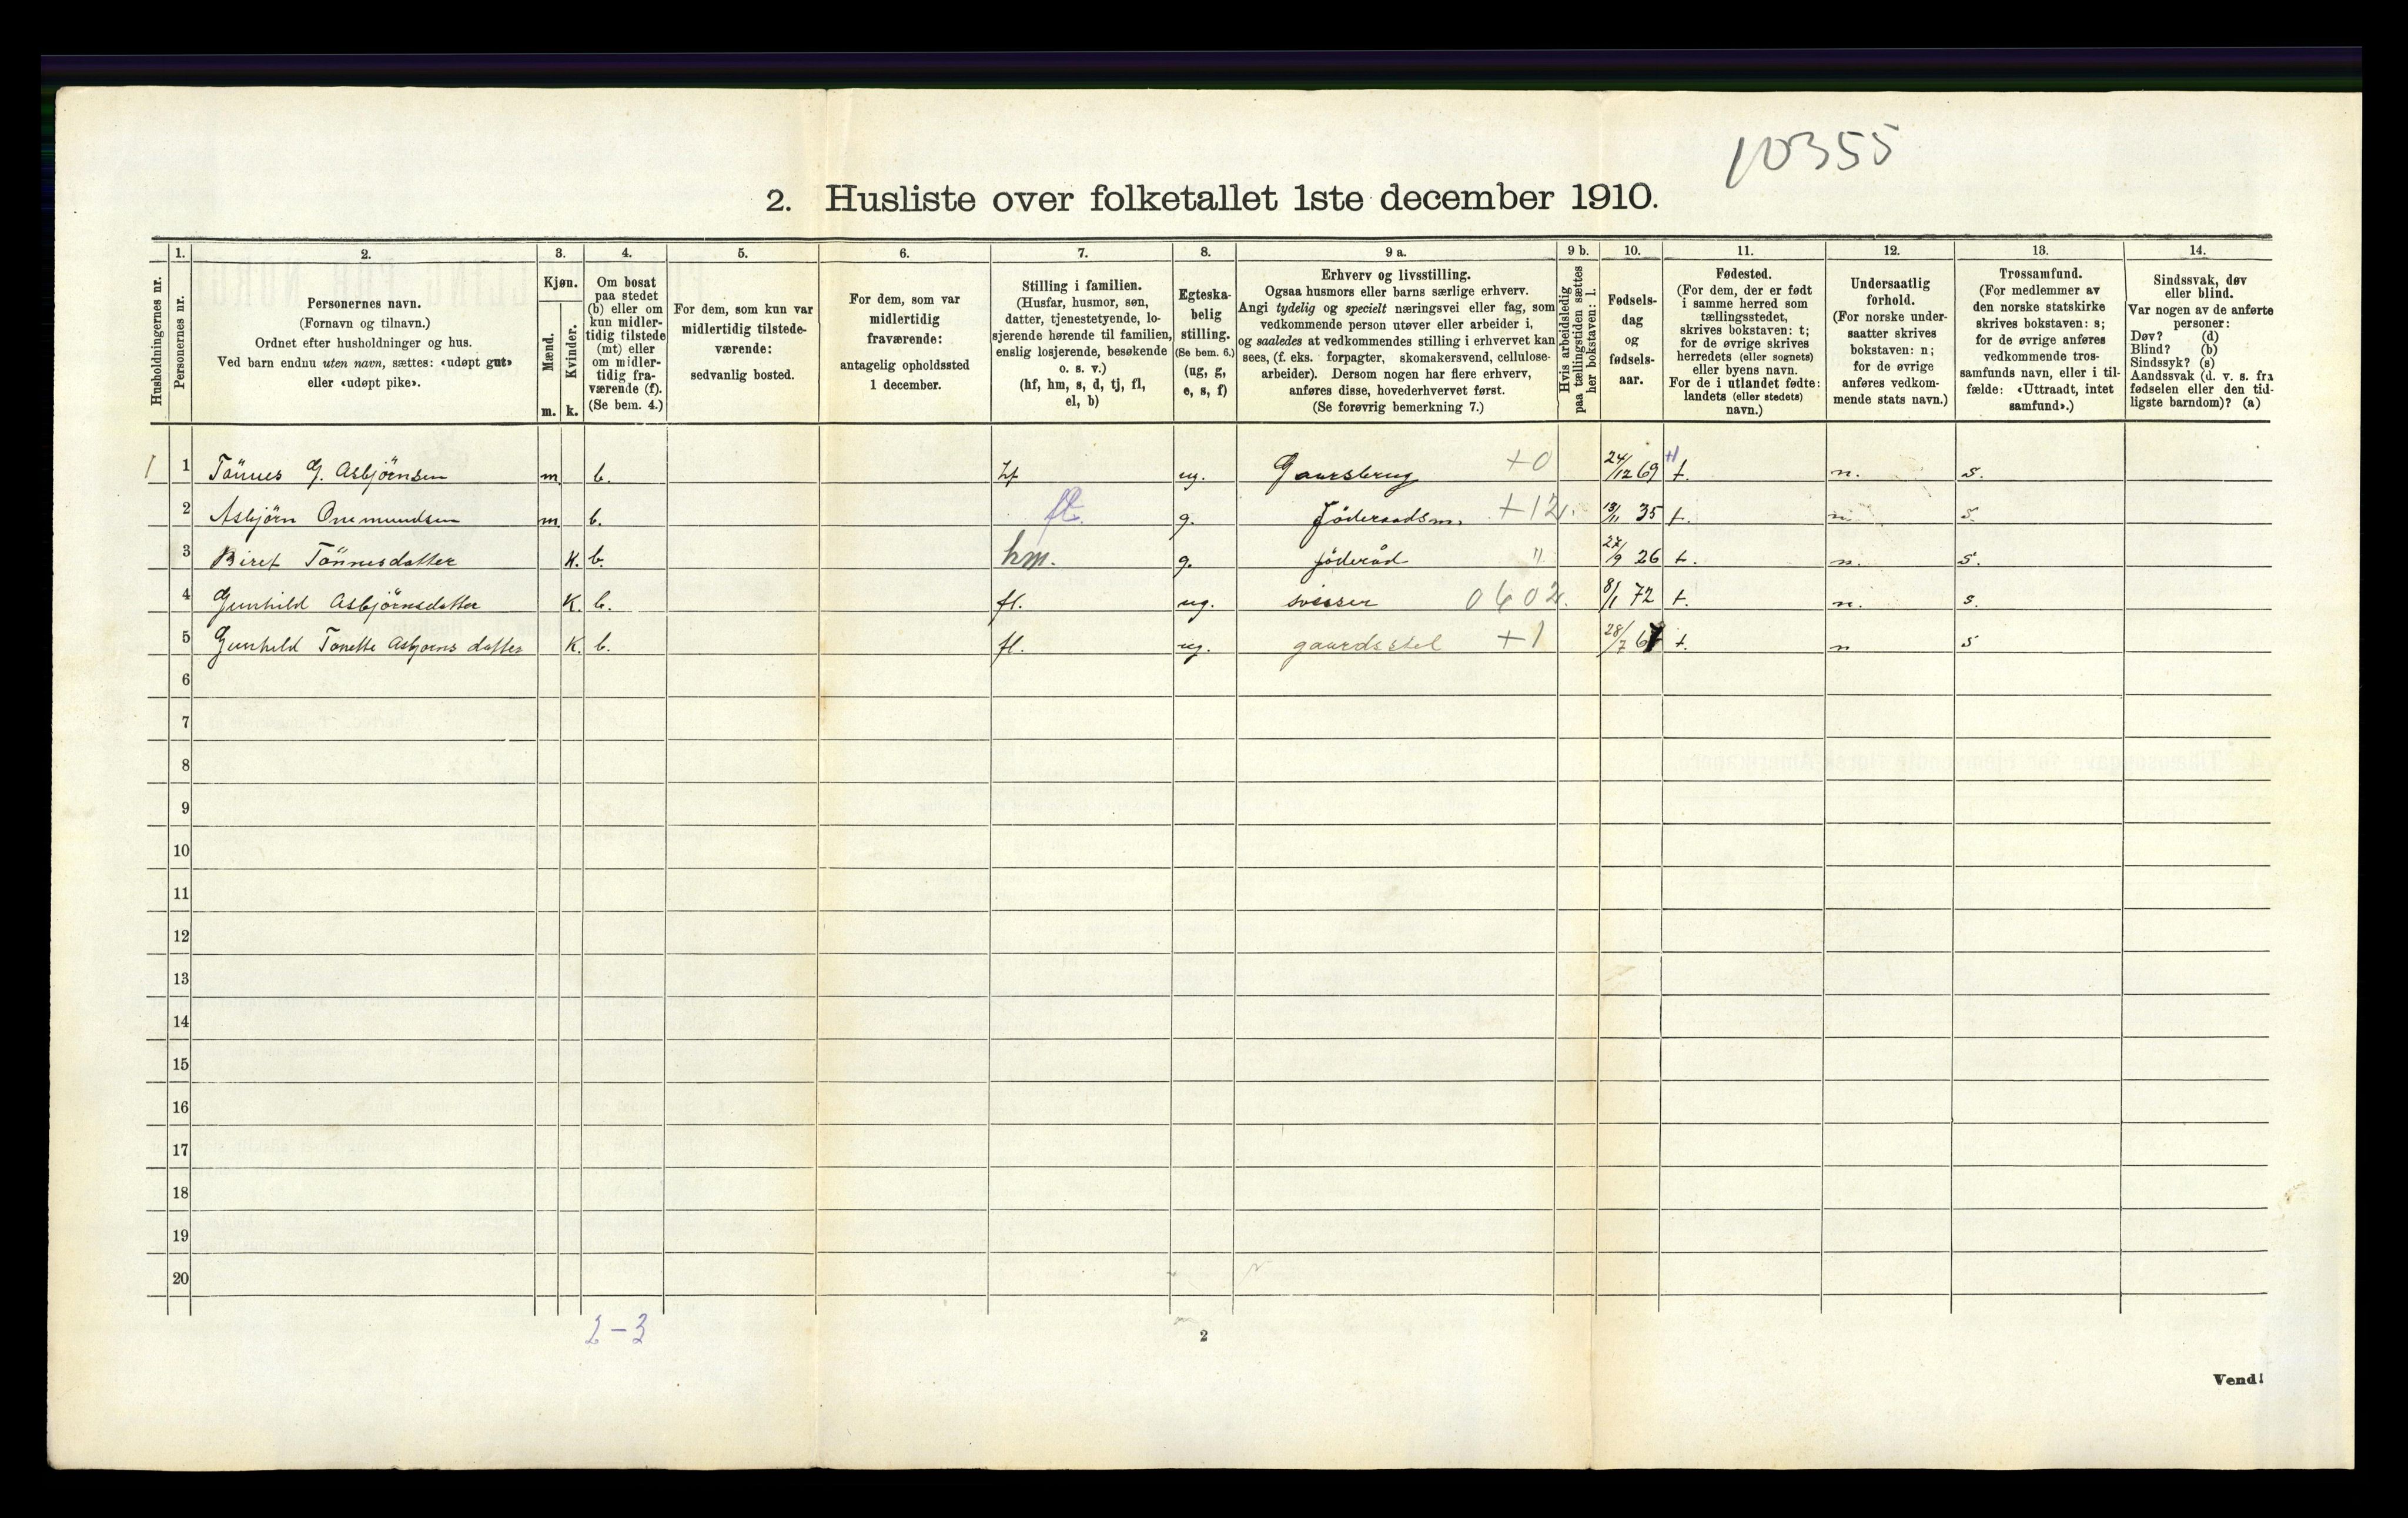 10355
2. Husliste over folketallet 1ste december 1910.
Husholdningernes nr.
1.
Personernes nr.
2.
Personernes navn.
(Fornavn og tilnavn.)
Ordnet efter husholdninger og hus.
Ved barn endnu uten navn, sættes: «udøpt gut»
eller «udøpt pike».
3.
Kjøn.
Mænd.
m.
Kvinder.
k.
4.
Om bosat
paa stedet
(b) eller om
kun midler-
tidig tilstede
(mt) eller
om midler-
tidig fra-
værende (f).
(Se bem. 4.)
5.
For dem, som kun var
midlertidig tilstede-
værende:
sedvanlig bosted.
6.
For dem, som var
midlertidig
fraværende:
antagelig opholdssted
1 december.
7.
Stilling i familien.
(Husfar, husmor, søn,
datter, tjenestetyende, lo-
sjerende hørende til familien,
enslig losjerende, besøkende
o. s. v.)
(hf, hm, s, d, tj, fl,
el, b)
8.
Egteska-
belig
stilling.
(Se bem. 6.)
(ug, g,
e, s, f)
9 a.
Erhverv og livsstilling.
Ogsaa husmors eller barns særlige erhverv.
Angi tydelig og specielt næringsvei eller fag, som
vedkommende person utøver eller arbeider i,
og saaledes at vedkommendes stilling i erhvervet kan
sees, (f. eks. forpagter, skomakersvend, cellulose-
arbeider). Dersom nogen har flere erhverv,
anføres disse, hovederhvervet først.
(Se forøvrig bemerkning 7.)
9 b.
Hvis arbeidsledig
paa tællingstiden sættes
her bokstaven: l.
10.
Fødsels-
dag
og
fødsels-
aar.
11.
Fødested.
(For dem, der er født
i samme herred som
tællingsstedet,
skrives bokstaven: t;
for de øvrige skrives
herredets (eller sognets)
eller byens navn.
For de i utlandet fødte:
landets (eller stedets)
navn.)
12.
Undersaatlig
forhold.
(For norske under-
saatter skrives
bokstaven: n;
for de øvrige
anføres vedkom-
mende stats navn.)
13.
Trossamfund.
(For medlemmer av
den norske statskirke
skrives bokstaven: s;
for de øvrige anføres
vedkommende tros-
samfunds navn, eller i til-
fælde: «Uttraadt, intet
samfund».)
14.
Sindssvak, døv
eller blind.
Var nogen av de anførte
personer:
Døv? (d)
Blind? (b)
Sindssyk? (s)
Aandssvak (d. v. s. fra
fødselen eller den tid-
ligste barndom)? (a)
1 1 Tönnes G. Asbjörnsen m. b. hf ug. Gaarsbrug +0 24/12 69 t. n. s.
2 Asbjörn Onemundsen m. b. fl. g. Föderaadsm. +12. 13/11 35 t. n. s.
3 Biret Tönnesdatter K. b. hm. g. föderåd " 27/9 26 t. n. s.
4 Gunhild Asbjörnsdatter K. b. fl. ug. sveiser 0602. 8/1 72 t. n. s.
5 Gunhild Tonette Asbjorns datter K. b. fl. ug. gaardsstel +1 28/7 67 t. n s
6
7
8
9
10
11
12
13
14
15
16
17
18
19
20
2-3
2
Vend!